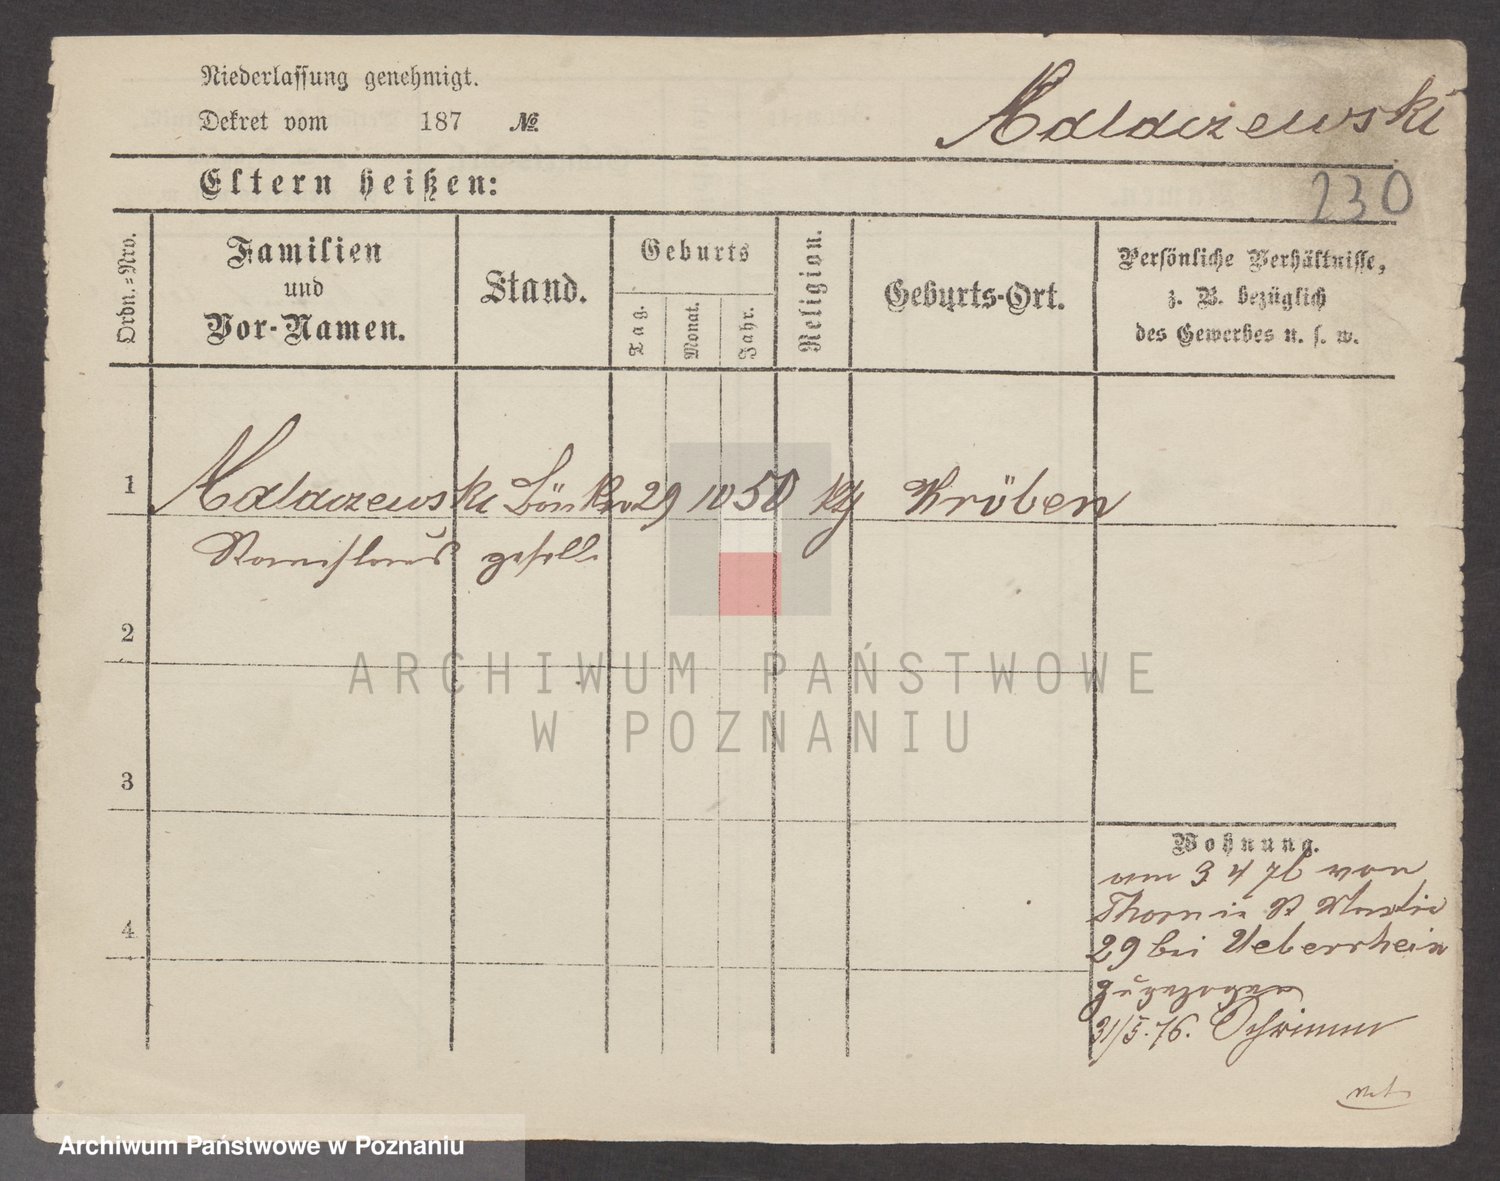 Niederlassung genehmigt.
Dekret vom 187 №
Adalaczewski
Eltern heißen:
230
Ordn.-Nro.
Familien
und
Vor-Namen.
Stand.
Geburts
Tag.
Monat.
Jahr.
Religion.
Geburts-Ort.
Persönliche Verhältnisse,
z. B. bezüglich
des Gewerbes u. s. w.
1
29 10 50 Kröben
Stanislaus gesell
2
ARCHIWUM PAŃSTWOWE
W POZNANIU
3
Wohnung.
am 3 4 76 von
Thorn in St Martin
29 bei Ueberrhein
zugezogen
31/5.76. Schrimm
4
Archiwum Państwowe w Poznaniu